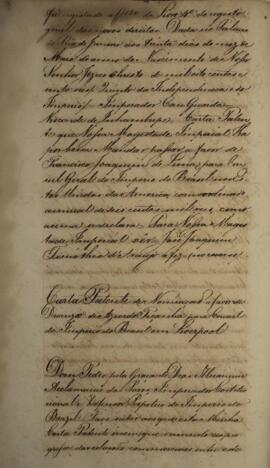 Foi registada a f. de Livro 4º de registo
geral das novas direitos. Dada no Palacio
do Rio de Janeiro aos trinta dias do mez de
Maio do anno do Nascimento de Nosso
Senhor Jezus Christo de mil oito centos e
vinte e seis Quinto da Independencia e do
Imperio. Imperador Com Guarda
Visconde de Inhambupe. Carta Paten
te que Vossa Magestade Imperial Ha
por bem Mandar passar a favor de
Francisco Joaquim de Lima, para Con
sul Geral do Imperio do Brasil nos Es
tados Unidos da America com ordenado
annual de seis centos mil reis, como
acima se declara. Para Vossa Mages
tade Imperial ver. José Joaquim
Timotheo de Araujo a fez
Carta Patente de Nomeação a favor de
de Azevedo Peçanha para Consul
do Imperio do Brasil em Liverpool
Dom Pedro pela Graça de Deos e Unanime
Acclamação dos Povos, Imperador Constitu
cional e Defensor Perpetuo do Imperio do
Brazil. Faço saber aos que esta Minha
Carta Patente virem, que convindo
das relações commerciaes entre o